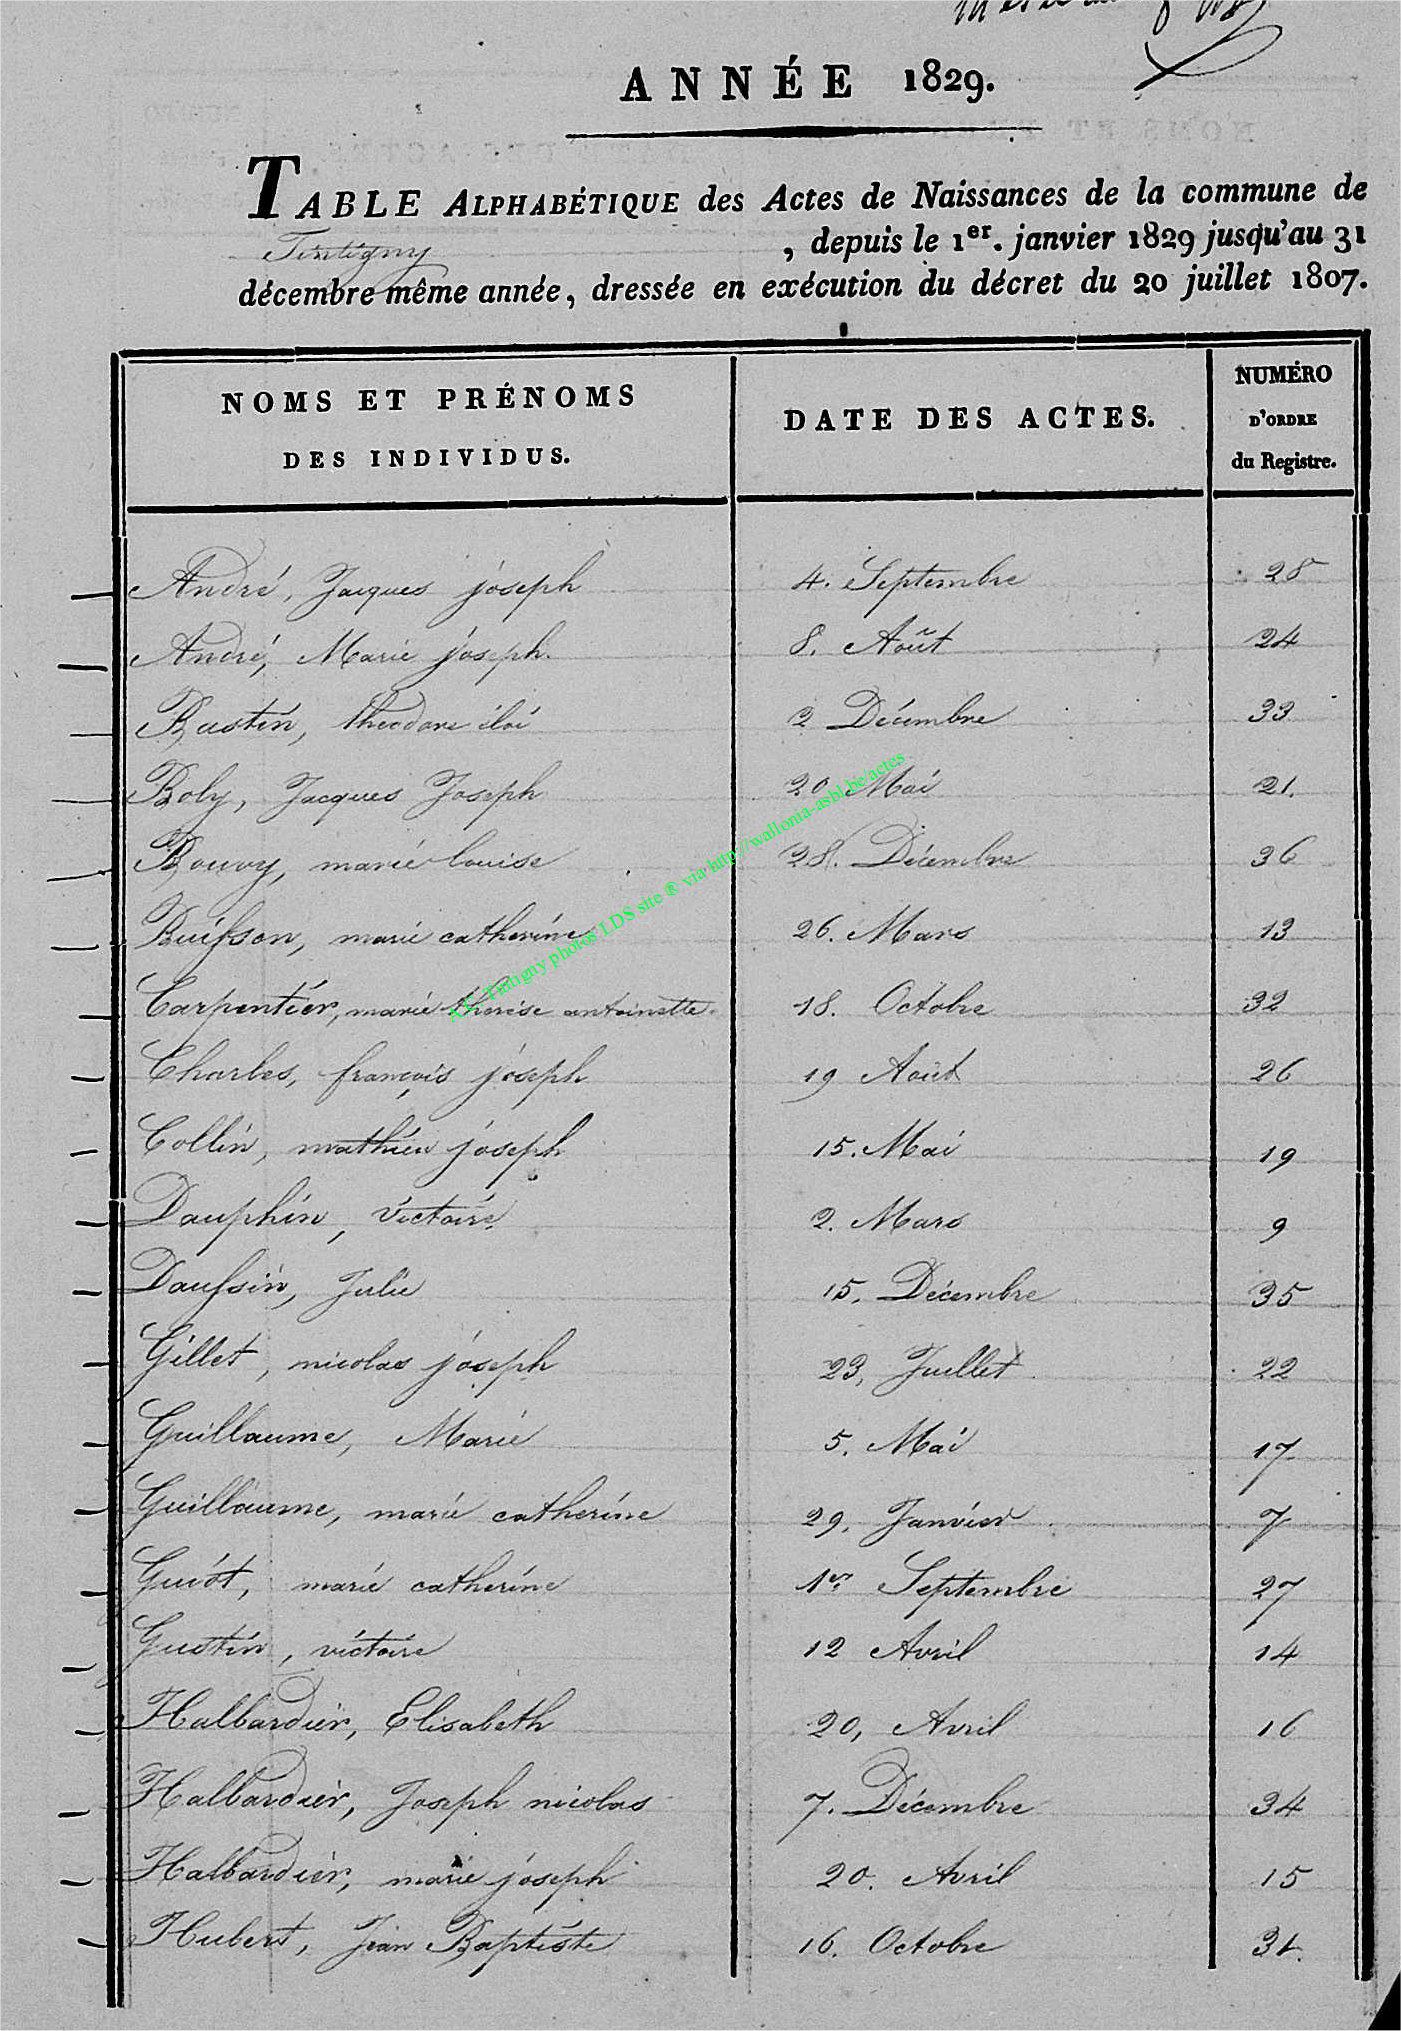 ANNÉE 1829.
TABLE ALPHABÉTIQUE des Actes de Naissances de la commune de
Tintigny , depuis le 1er. janvier 1829 jusqu'au 31
décembre même année, dressée en exécution du décret du 20 juillet 1807.
NOMS ET PRÉNOMS
DES INDIVIDUS.
DATE DES ACTES.
NUMÉRO
D'ORDRE
du Registre.
André, Jacques joseph 4. Septembre 28
André, Marie joseph. 8. Août 24
Bastin, theodore éloi 2 Décembre 33
Boly, Jacques Joseph 20 Mai 21.
Bouvy, marie louise 28. Décembre 36
Buisson, marie catherine 26. Mars 13
Carpentier, marie therese antoinette. 18. Octobre 32
Charles, françois joseph 19 Août 26
Collin, mathieu joseph 15. Mai 19
Dauphin, victoire 2. Mars 9
Daussin, Julie 15. Décembre 35
Gillet, nicolas joseph 23, Juillet 22
Guillaume, Marie 5. Mai 17
Guillaume, marie catherine 29. Janvier 7
Guiot, marie catherine 1er Septembre 27
Gustin, victoire 12 Avril 14
Halbardier, Elisabeth 20, Avril 16
Halbardier, Joseph nicolas 7. Décembre 34
Halbardier, marie joseph 20. Avril 15
Hubert, Jean Baptiste 16. Octobre 31.
A.C. Tintigny photos LDS site ® via http://wallonia-asbl.be/actes